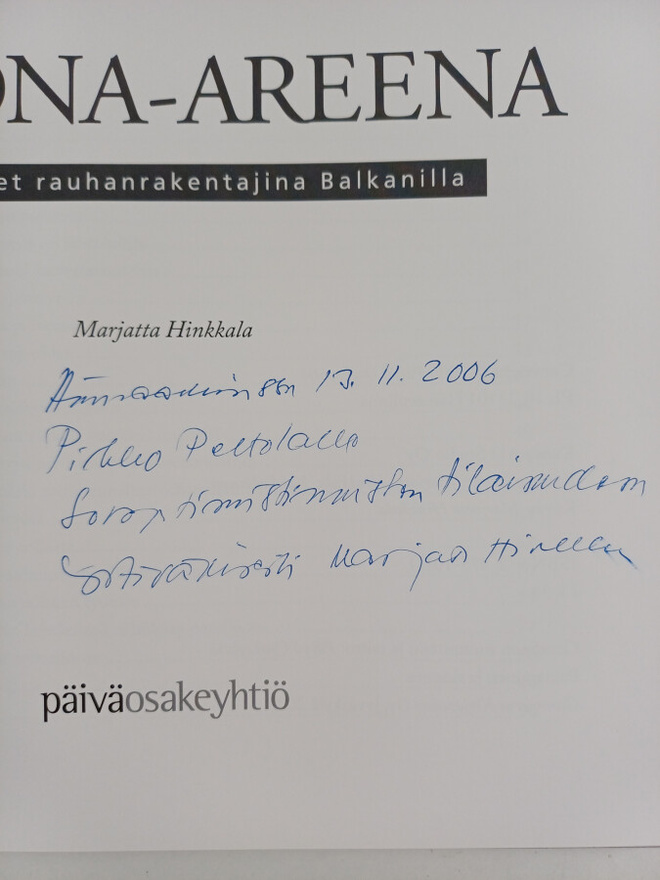 ONA-AREENA
et rauhanrakentajina Balkanilla
Marjatta Hinkkala
Hämeenlinnassa 13. 11. 2006
Pirkko Peltolalle
tilaisuudessa
Ystävällisesti Marjatta Hinkkala
päiväosakeyhtiö